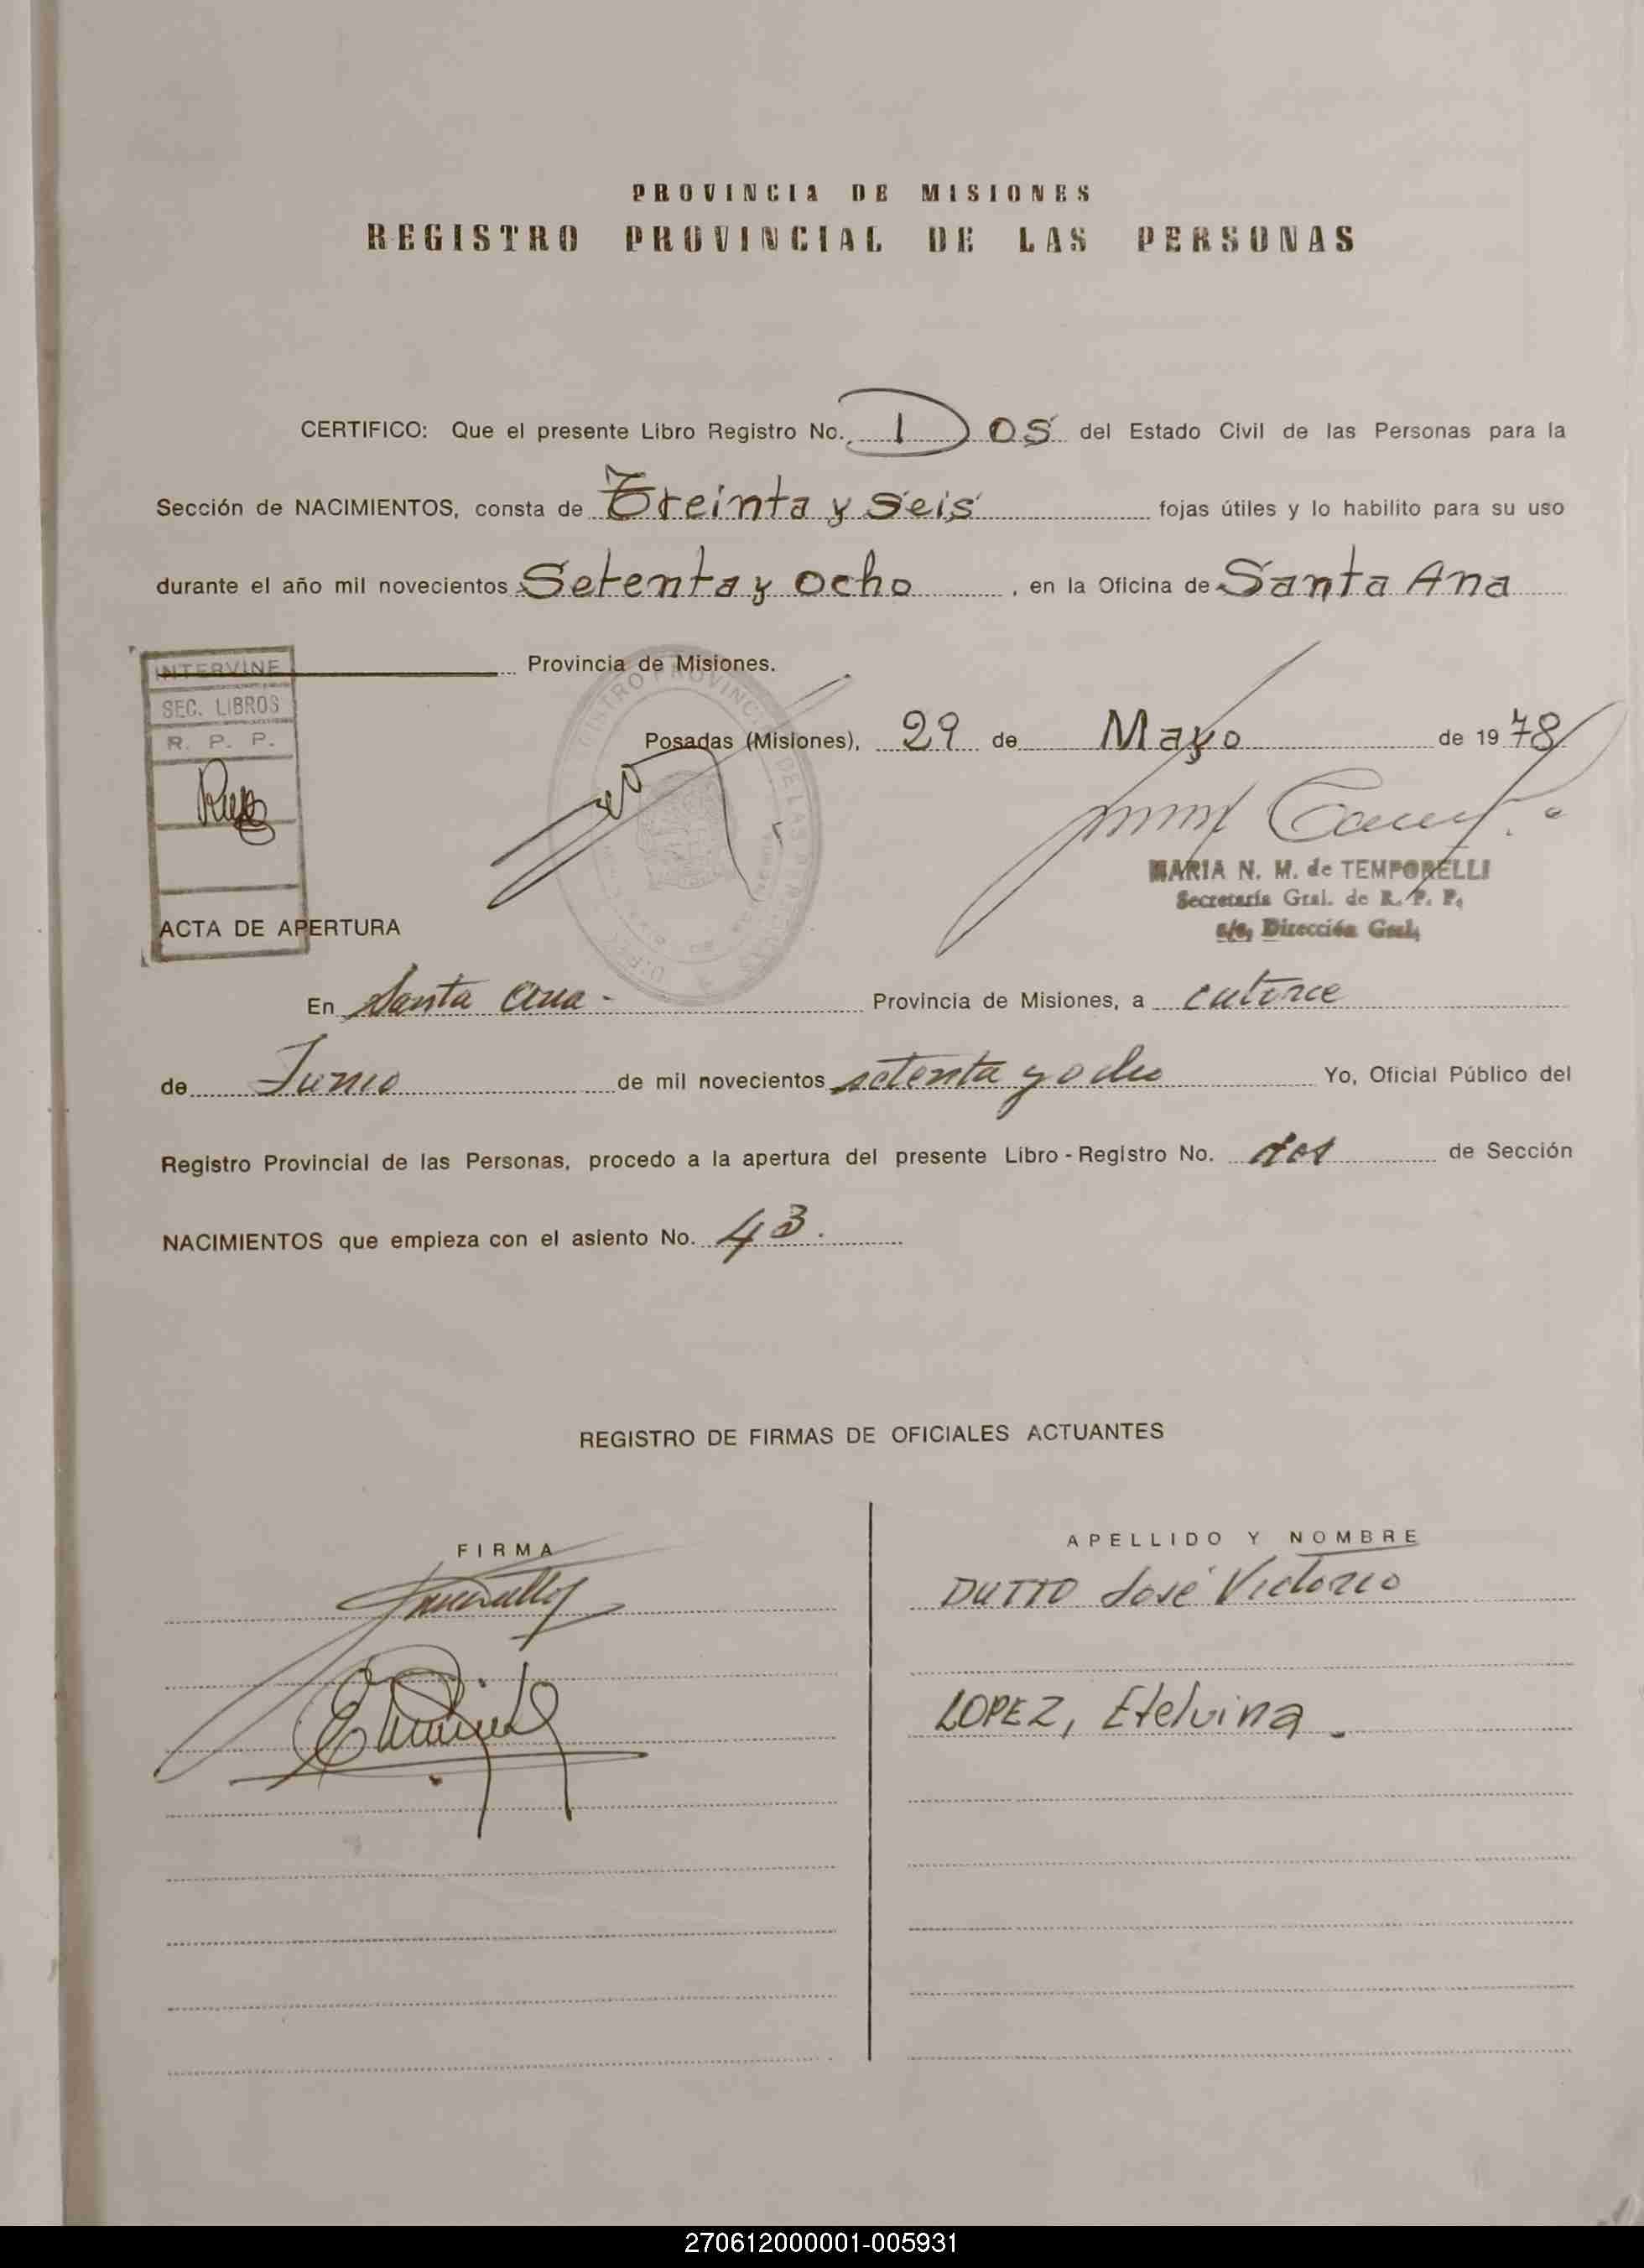 PROVINCIA DE MISIONES
REGISTRO PROVINCIAL DE LAS PERSONAS
CERTIFICO: Que el presente Libro Registro No. DOS del Estado Civil de las Personas para la
Sección de NACIMIENTOS, consta de Treinta y Seis fojas útiles y lo habilito para su uso
durante el año mil novecientos Setenta y Ocho, en la Oficina de Santa Ana
Provincia de Misiones.
INTERVINE
SEC. LIBROS
R. P. P.
Posadas (Misiones), 29 de Mayo de 1978
MARIA N. M. de TEMPORELLI
Secretaría Gral. de R. P. P.
a/c. Dirección Gral.
ACTA DE APERTURA
En Santa Ana - Provincia de Misiones, a catorce
de Junio de mil novecientos setenta y ocho Yo, Oficial Público del
Registro Provincial de las Personas, procedo a la apertura del presente Libro - Registro No. dos de Sección
NACIMIENTOS que empieza con el asiento No. 43.
REGISTRO DE FIRMAS DE OFICIALES ACTUANTES
FIRMA
APELLIDO Y NOMBRE
DUTTO José Victorio
LOPEZ, Etelvina.
270612000001-005931